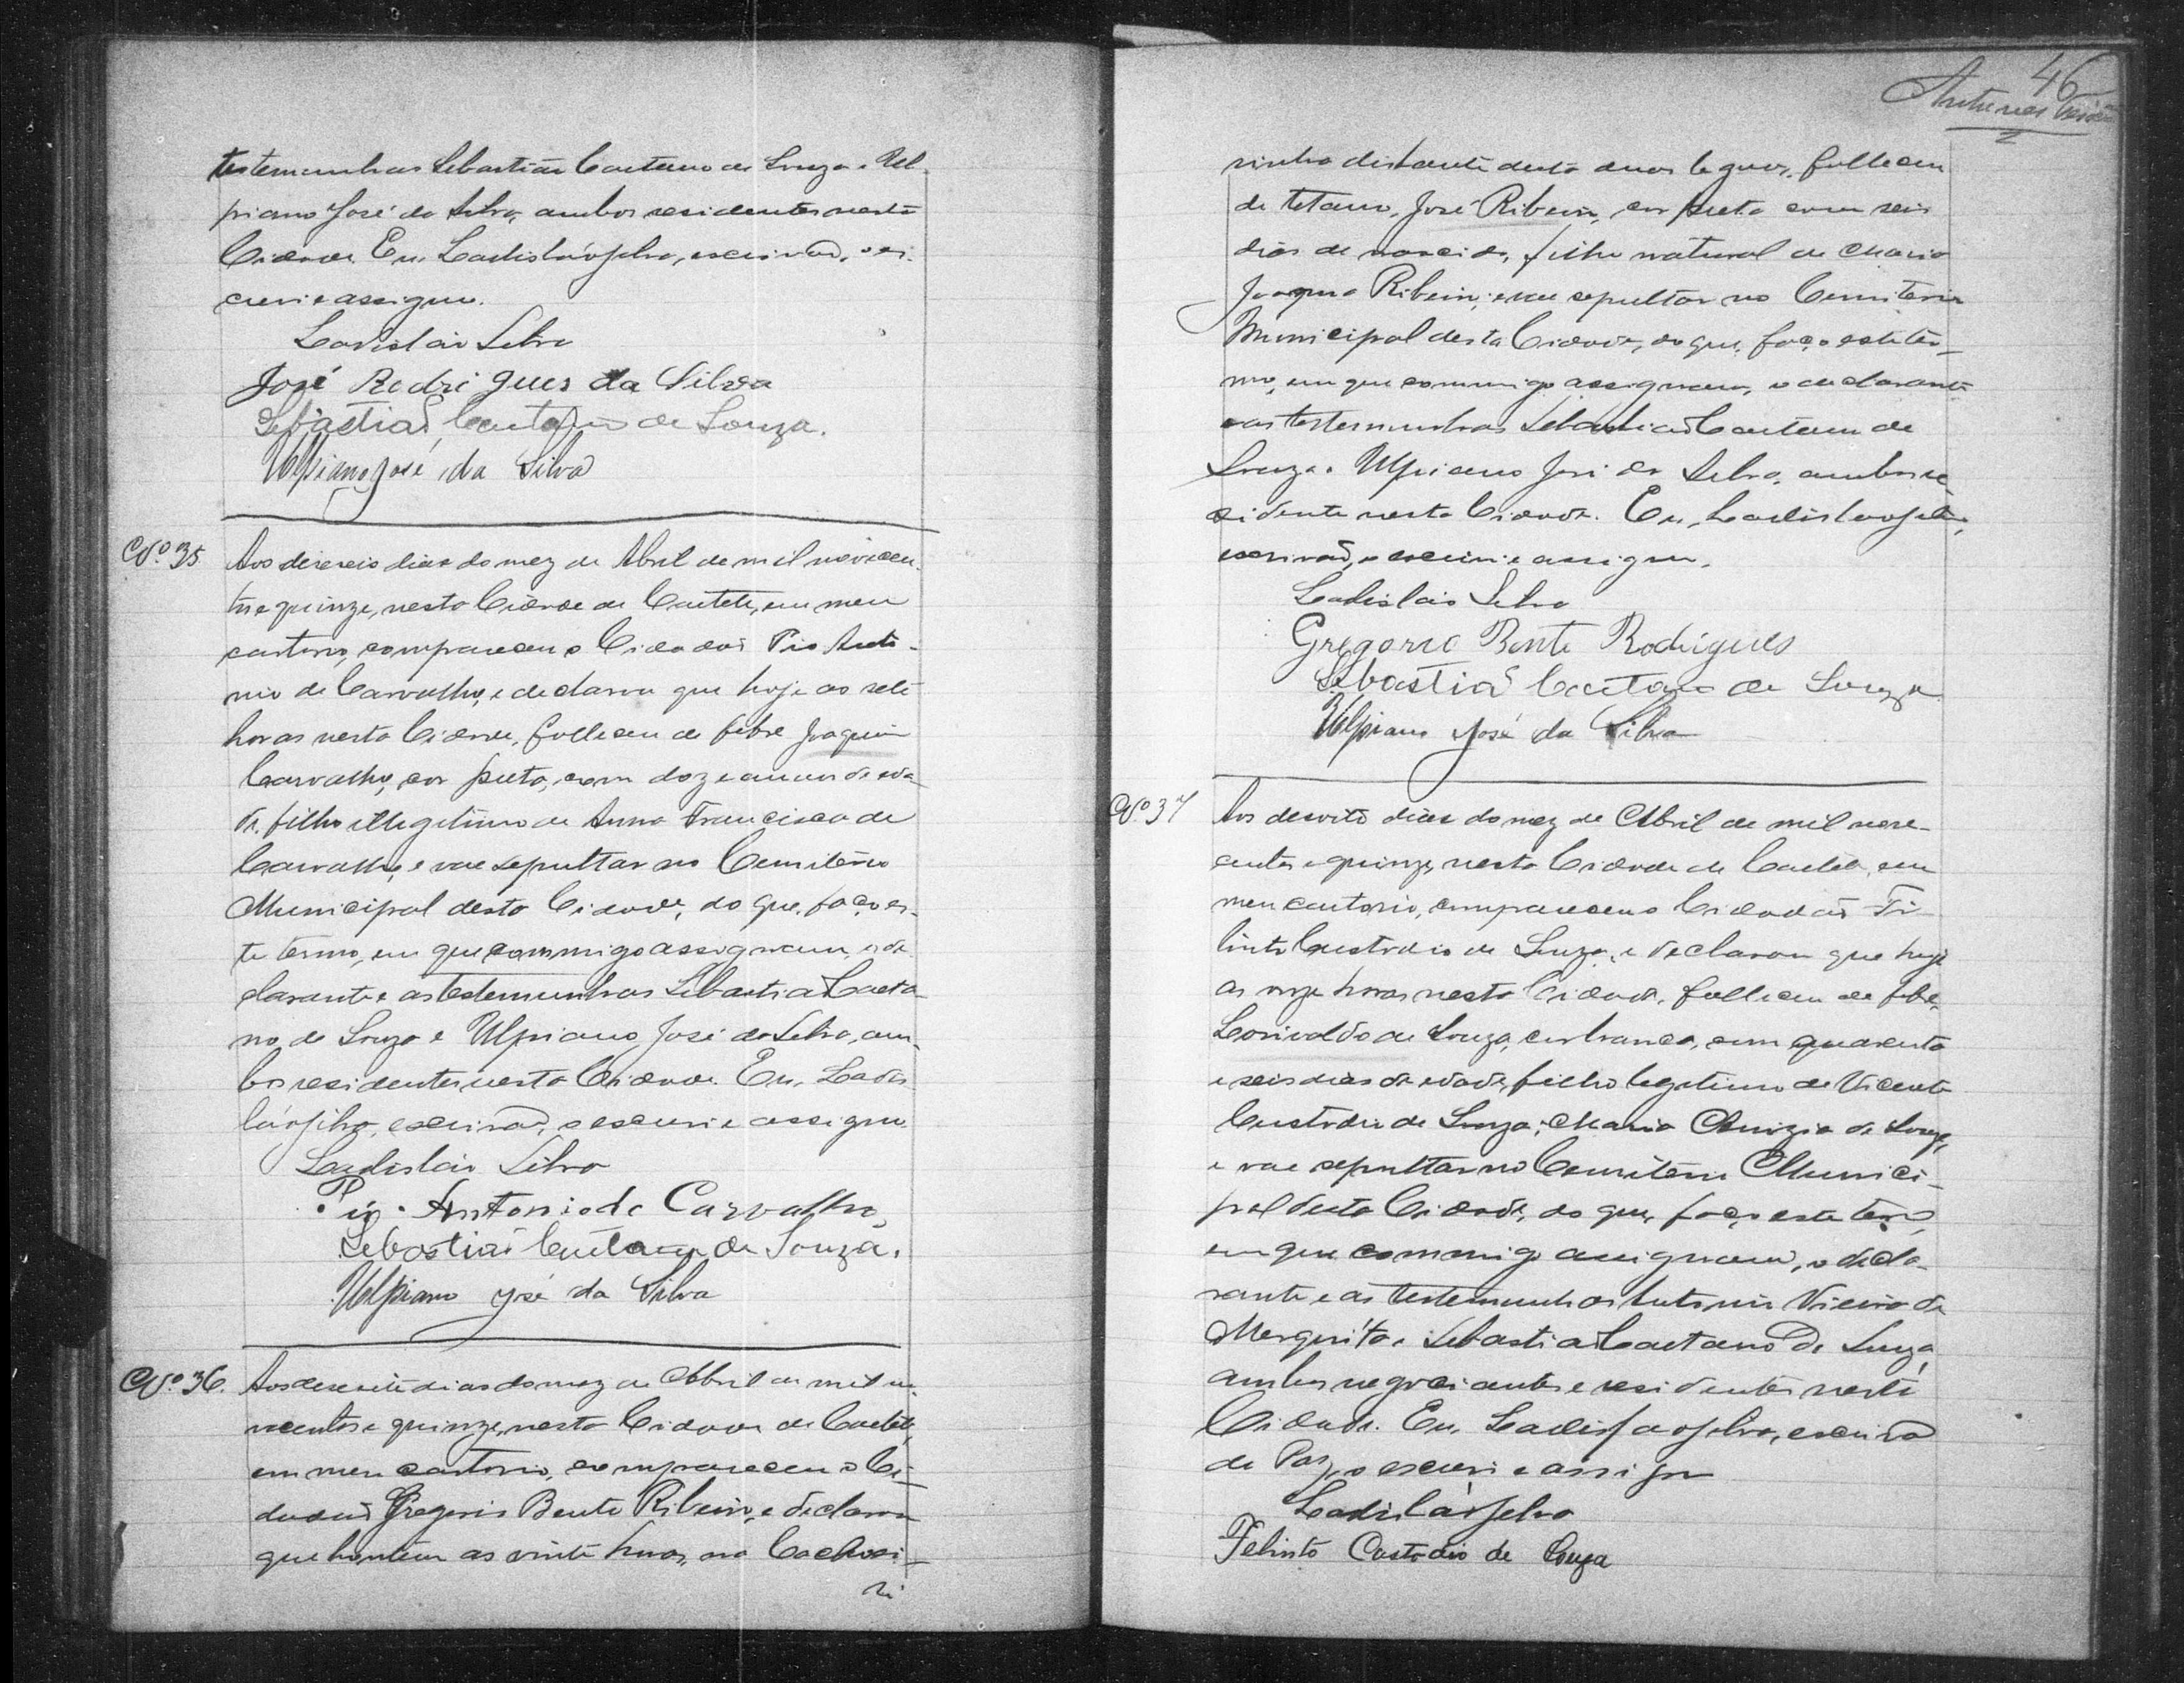 testemunhas Sebastião Caetano de Souza e Ul-
piano José da Silva, ambos residentes nesta
Cidade. Eu, Ladisláo Silva, escrivão, o es-
crevi e assigno.
Ladisláo Silva
José Rodrigues da Silva
Sebastião Caetano de Souza.
Ulpiano José da Silva
Nº 35
Aos deseseis dias do mez de Abril de mil novecen-
tos e quinze, nesta Cidade de Caeteté, em meu
cartorio, compareceu o Cidadão Pio Anto-
nio de Carvalho, e declarou que hoje as sete
horas nesta Cidade, falleceu de febre Joaquim
Carvalho, cor preta, com doze annos de eda-
de, filho illegitimo de Anna Francisca de
Carvalho, e vae sepultar no Cemiterio
Municipal desta Cidade, do que, faço es-
te termo, em que commigo assignam, o de-
clarante e as testemunhas Sebastião Caeta-
no de Souza e Ulpiano José da Silva, am-
bos residentes nesta Cidade. Eu, Ladis-
láo Silva, escrivão, o escrevi e assigno.
Ladisláo Silva
Pio Antonio de Carvalho,
Sebastião Caetano de Souza.
Ulpiano José da Silva
Nº 36.
Aos desesete dias do mez de Abril de mil no-
vecentos e quinze, nesta Cidade de Caeteté,
em meu cartorio, compareceu o Ci-
dadão Gregorio Bento Ribeiro, e declarou
que hontem as vinte horas, na Cachoei-
ri
46
Antunes
rinha distante desta duas leguas, falleceu
de tetano, José Ribeiro, cor preta com seis
dias de nascido, filho natural de Maria
Joaquina Ribeiro, e vae sepultar no Cemiterio
Municipal desta Cidade, do que, faço este ter-
mo, em que commigo assignam, o declarante
e as testemunhas Sebastião Caetano de
Souza e Ulpiano José da Silva, ambos re-
sidente nesta Cidade. Eu, Ladisláo Silva,
escrivão, o escrevi e assigno.
Ladisláo Silva
Gregorio Bento Rodrigues
Sebastião Caetano de Souza
Ulpiano José da Silva
Nº 37
Aos desoito dias do mez de Abril de mil nove-
centos e quinze, nesta Cidade de Caeteté, em
meu cartorio, compareceu o Cidadão Fi-
linto Custodio de Souza, e declarou que hoje
as onze horas nesta Cidade, falleceu de febre,
Lorivaldo de Souza, cor branca, com quarenta
e seis dias de edade, filho legitimo de Vicente
Custodio de Souza e Maria de Souza,
e vae sepultar no Cemiterio Munici-
pal desta Cidade, do que, faço este termo,
em que commigo assignam, o decla-
rante e as testemunhas Antonio Vieira de
Mesquita e Sebastião Caetano de Souza,
ambos negociantes e residentes nesta
Cidade. Eu, Ladisláo Silva, escrivão
de Paz, o escrevi e assigno
Ladisláo Silva
Felinto Custodio de Souza